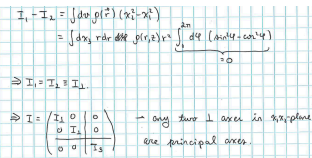 I₁ - I₂ = ∫dv ρ(r⃗) (x₂² - x₁²)
= ∫dx₃ rdr ρ(r,z) r² ∫₀²ᵖⁱ dφ (sin²φ - cos²φ)
= 0
⇒ I₁ = I₂ ≡ I⊥
⇒ I = (I⊥ 0 | 0
0 I⊥ | 0
0 0 | I₃) - any two ⊥ axes in x₁x₂-plane
are principal axes.